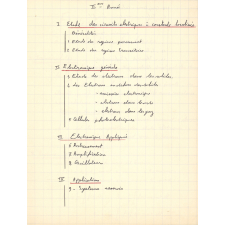 II ème Année
I Etude des circuits électriques à constantes localisées
Généralités
Etude du régime permanent
Etude des régimes transitoires
II Electronique générale
Etude des électrons dans les solides
des Electrons
- émission électronique
- électrons dans le vide
- électrons dans les gaz
Cellules photoélectriques
III Electronique Appliquée
Redressement
Amplification
Oscillateurs
IV Applications
9 - Systèmes